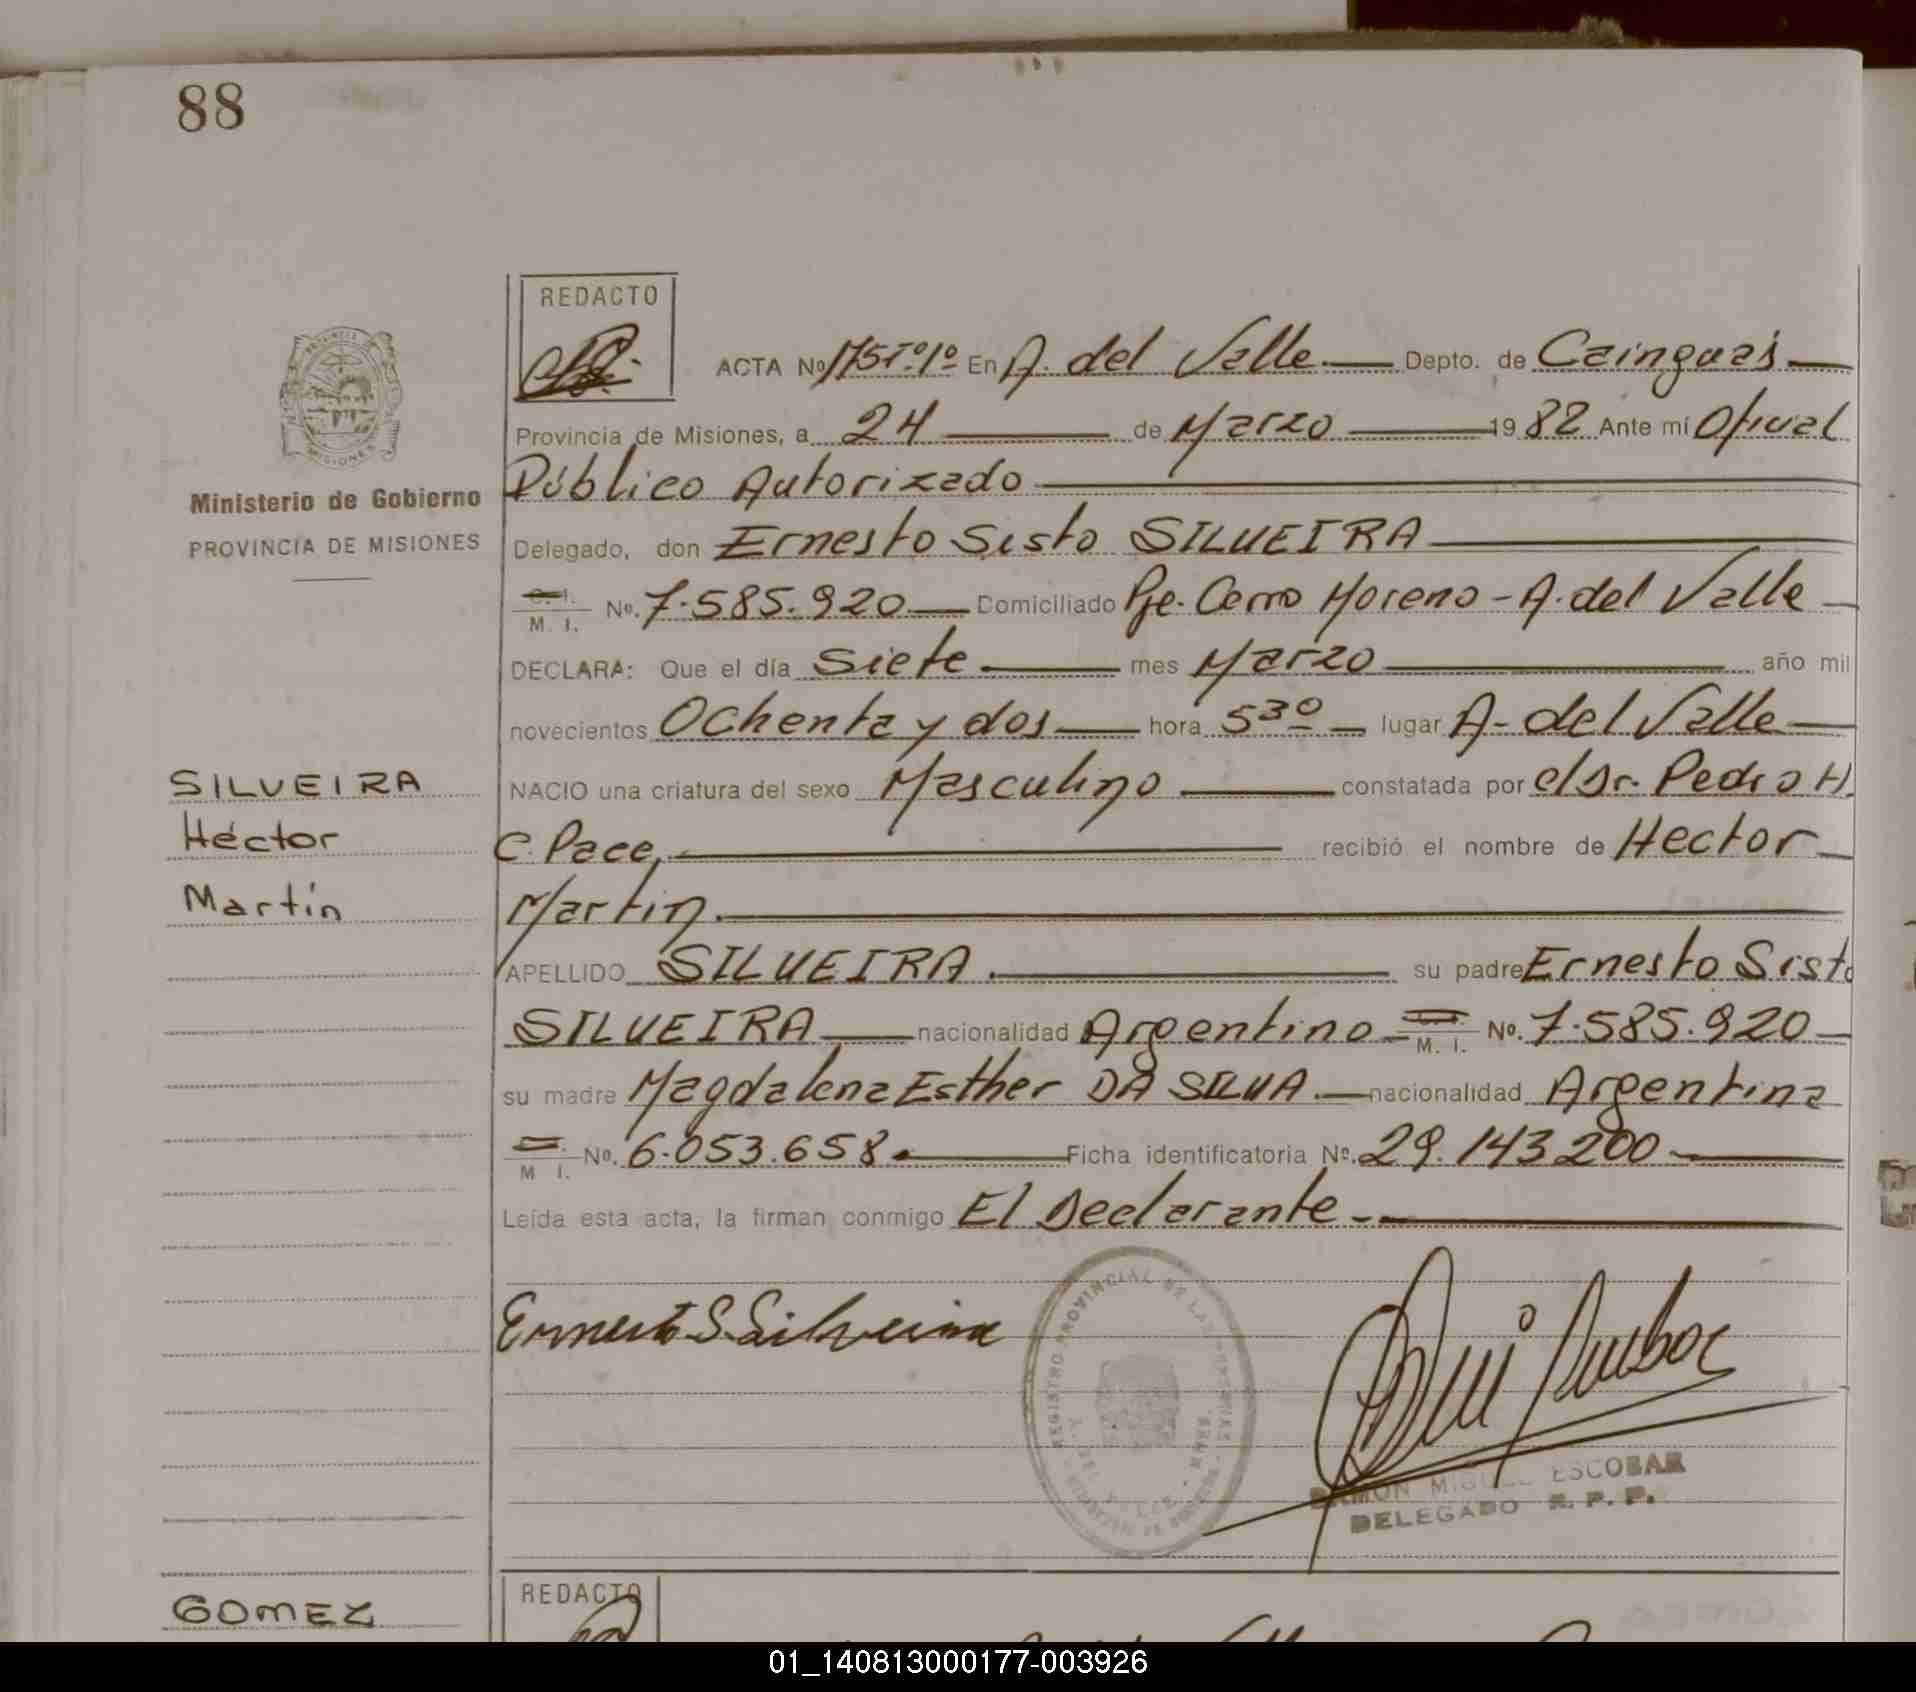 88
REDACTO
ACTA Nº 175 Tº 1º En A. del Valle Depto. de Cainguás
Provincia de Misiones, a 24 de Marzo 1982 Ante mí Oficial
Público Autorizado
Ministerio de Gobierno
PROVINCIA DE MISIONES
Delegado, don Ernesto Sisto SILVEIRA
C. I.
M. I. Nº. 7.585.920 Domiciliado Pje. Cerro Moreno - A. del Valle
DECLARA: Que el día Siete mes Marzo año mil
novecientos Ochenta y dos hora 5 30 lugar A. del Valle
SILVEIRA
NACIO una criatura del sexo Masculino constatada por el Dr. Pedro H.
Héctor
C. Pace, recibió el nombre de Hector
Martín
Martin.
APELLIDO SILVEIRA. su padre Ernesto Sisto
SILVEIRA nacionalidad Argentino M. I. Nº. 7.585.920
su madre Magdalena Esther DA SILVA. nacionalidad Argentina
M I. Nº. 6.053.658. Ficha identificatoria Nº. 29.143.200
Leída esta acta, la firman conmigo El Declarante.-
Ernesto S. Silveira
REGISTRO PROVINCIAL DE LAS PERSONAS
A. DEL VALLE - MNES.
RAMON MIGUEL ESCOBAR
DELEGADO R. P. P.
GOMEZ
REDACTO
01_140813000177-003926